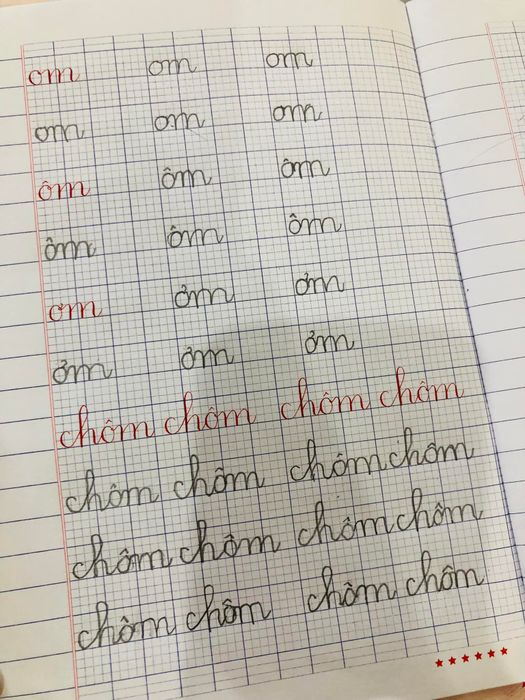 om om om
om om om
ôm ôm ôm
ôm ôm ôm
ơm ơm ơm
ơm ơm ơm
chôm chôm chôm chôm
chôm chôm chôm chôm
chôm chôm chôm chôm
chôm chôm chôm chôm